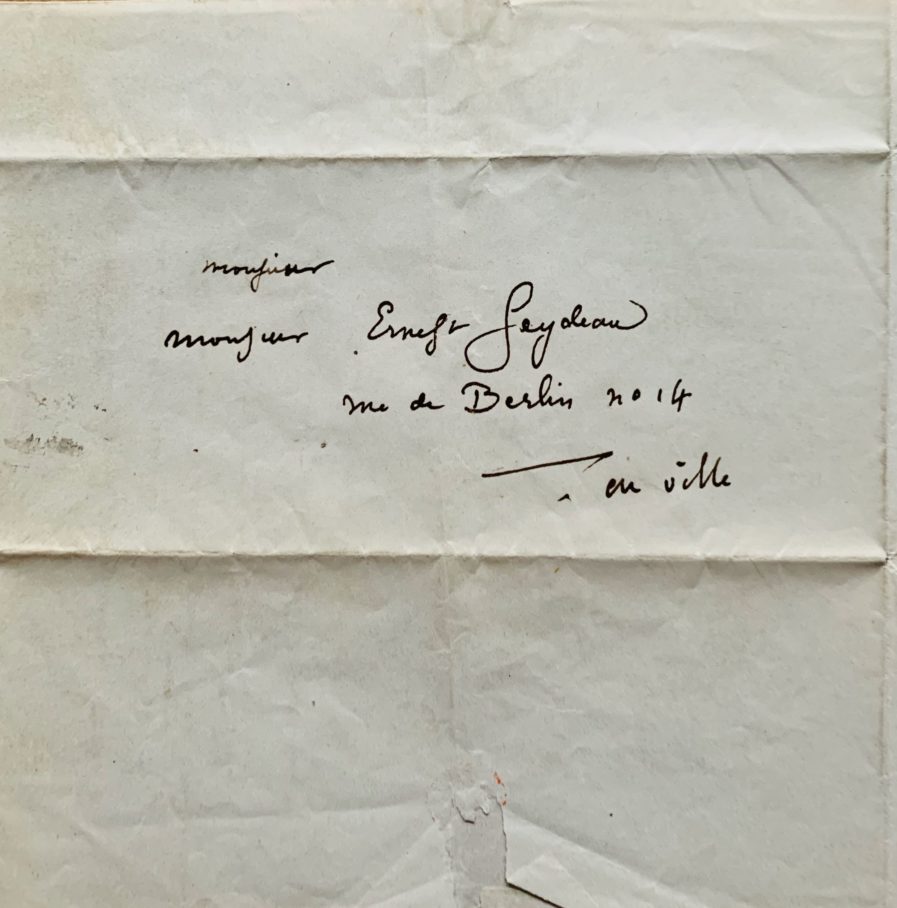 monsieur
monsieur Ernest Feydeau
rue de Berlin no 14
en ville